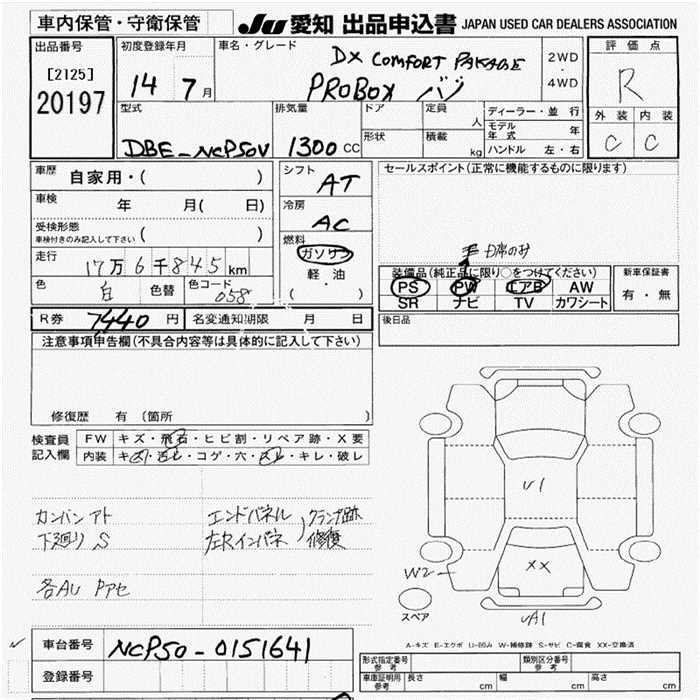 車内保管・守衛保管
JU 愛知 出品申込書 JAPAN USED CAR DEALERS ASSOCIATION
出品番号
[2125]
20197
初度登録年月
14 7月
車名・グレード
DX COMFORT PAKAGE
PROBOX バン
2WD
・
4WD
評価点
R
外装 内装
C C
型式
DBE-NCP50V
排気量
1300 CC
ドア
形状
定員 人
積載 kg
ディーラー・並行
モデル年式 年
ハンドル 左・右
車歴
自家用・( )
車検 年 月( 日)
受検形態
車検付きのみ記入して下さい ( )
走行
17万6千845km
色 白 色替 色コード 058
シフト
AT
冷房
AC
燃料
ガソリン
軽油
( )
セールスポイント(正常に機能するものに限ります)
手 助席のみ
装備品(純正品に限り○をつけてください)
PS PW エアB AW
SR ナビ TV カワシート
新車保証書
有・無
R券 7440 円 名変通知期限 月 日
後日品
注意事項申告欄(不具合内容等は具体的に記入して下さい)
修復歴 有 (箇所 )
検査員記入欄
FW キズ・飛石・ヒビ割・リペア跡・X要
内装 キズ・汚レ・コゲ・穴・スレ・キレ・破レ
カンバンアト
下廻り S
エンドパネル
左Rインパネ
クランプ跡
修復
各AU Pアセ
U1
XX
W2
スペア
UA1
A-キズ E-エクボ U-凹み W-補修跡 S-サビ C-腐食 XX-交換済
車台番号 NCP50-0151641
登録番号
形式指定番号 参考
類別区分番号 参考
車庫証明用 参考 長さ cm 幅 cm 高さ cm